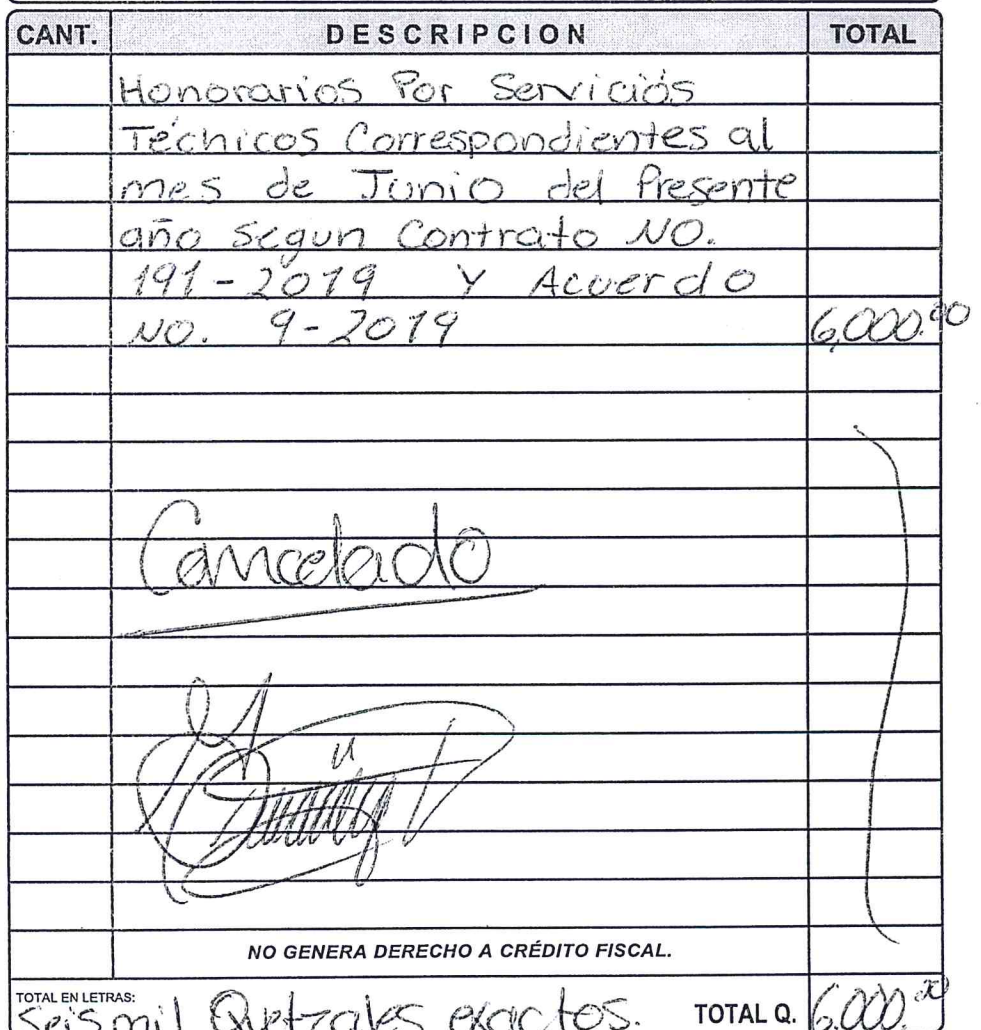 CANT. DESCRIPCION TOTAL
Honorarios Por Serviciós
Técnicos Correspondientes al
mes de Junio del Presente
año Segun Contrato NO.
191-2019 Y Acuerdo
NO. 9-2019 6,000.00
Cancelado
NO GENERA DERECHO A CRÉDITO FISCAL.
TOTAL EN LETRAS:
Seis mil Quetzales exactos. TOTAL Q. 6,000.00